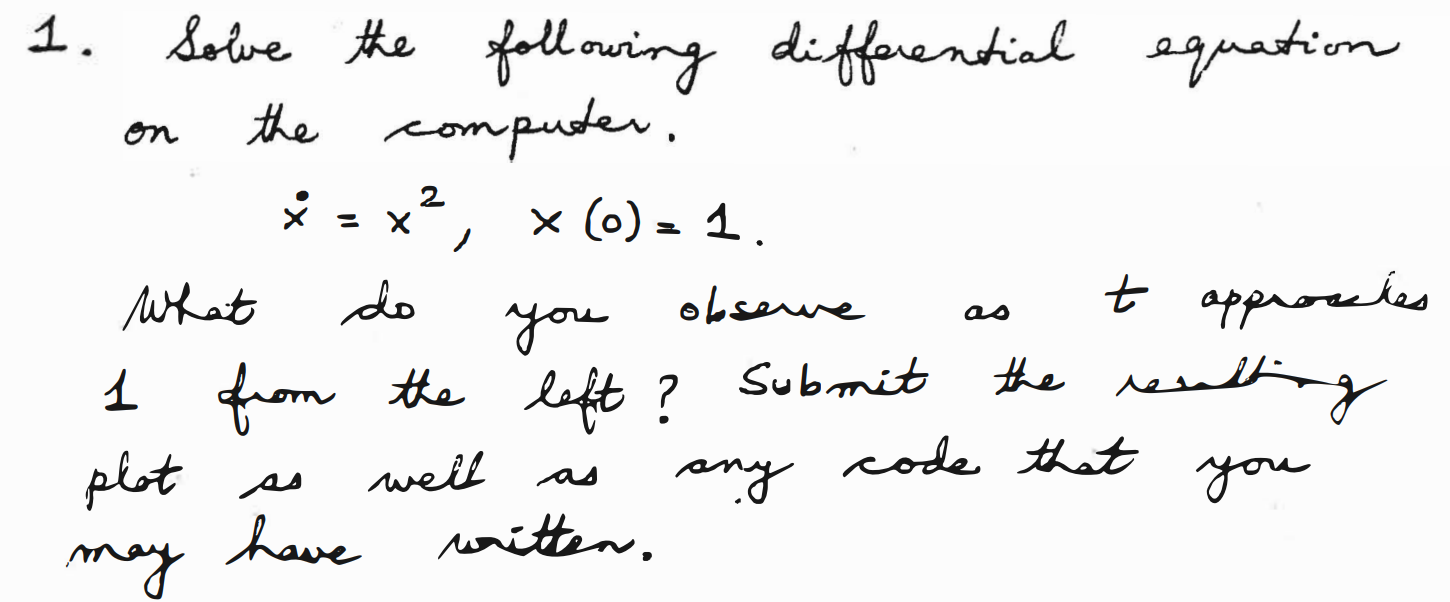 1. Solve the following differential equation
on the computer.
ẋ = x², x(0) = 1.
What do you observe as t approaches
1 from the left? Submit the resulting
plot as well as any code that you
may have written.